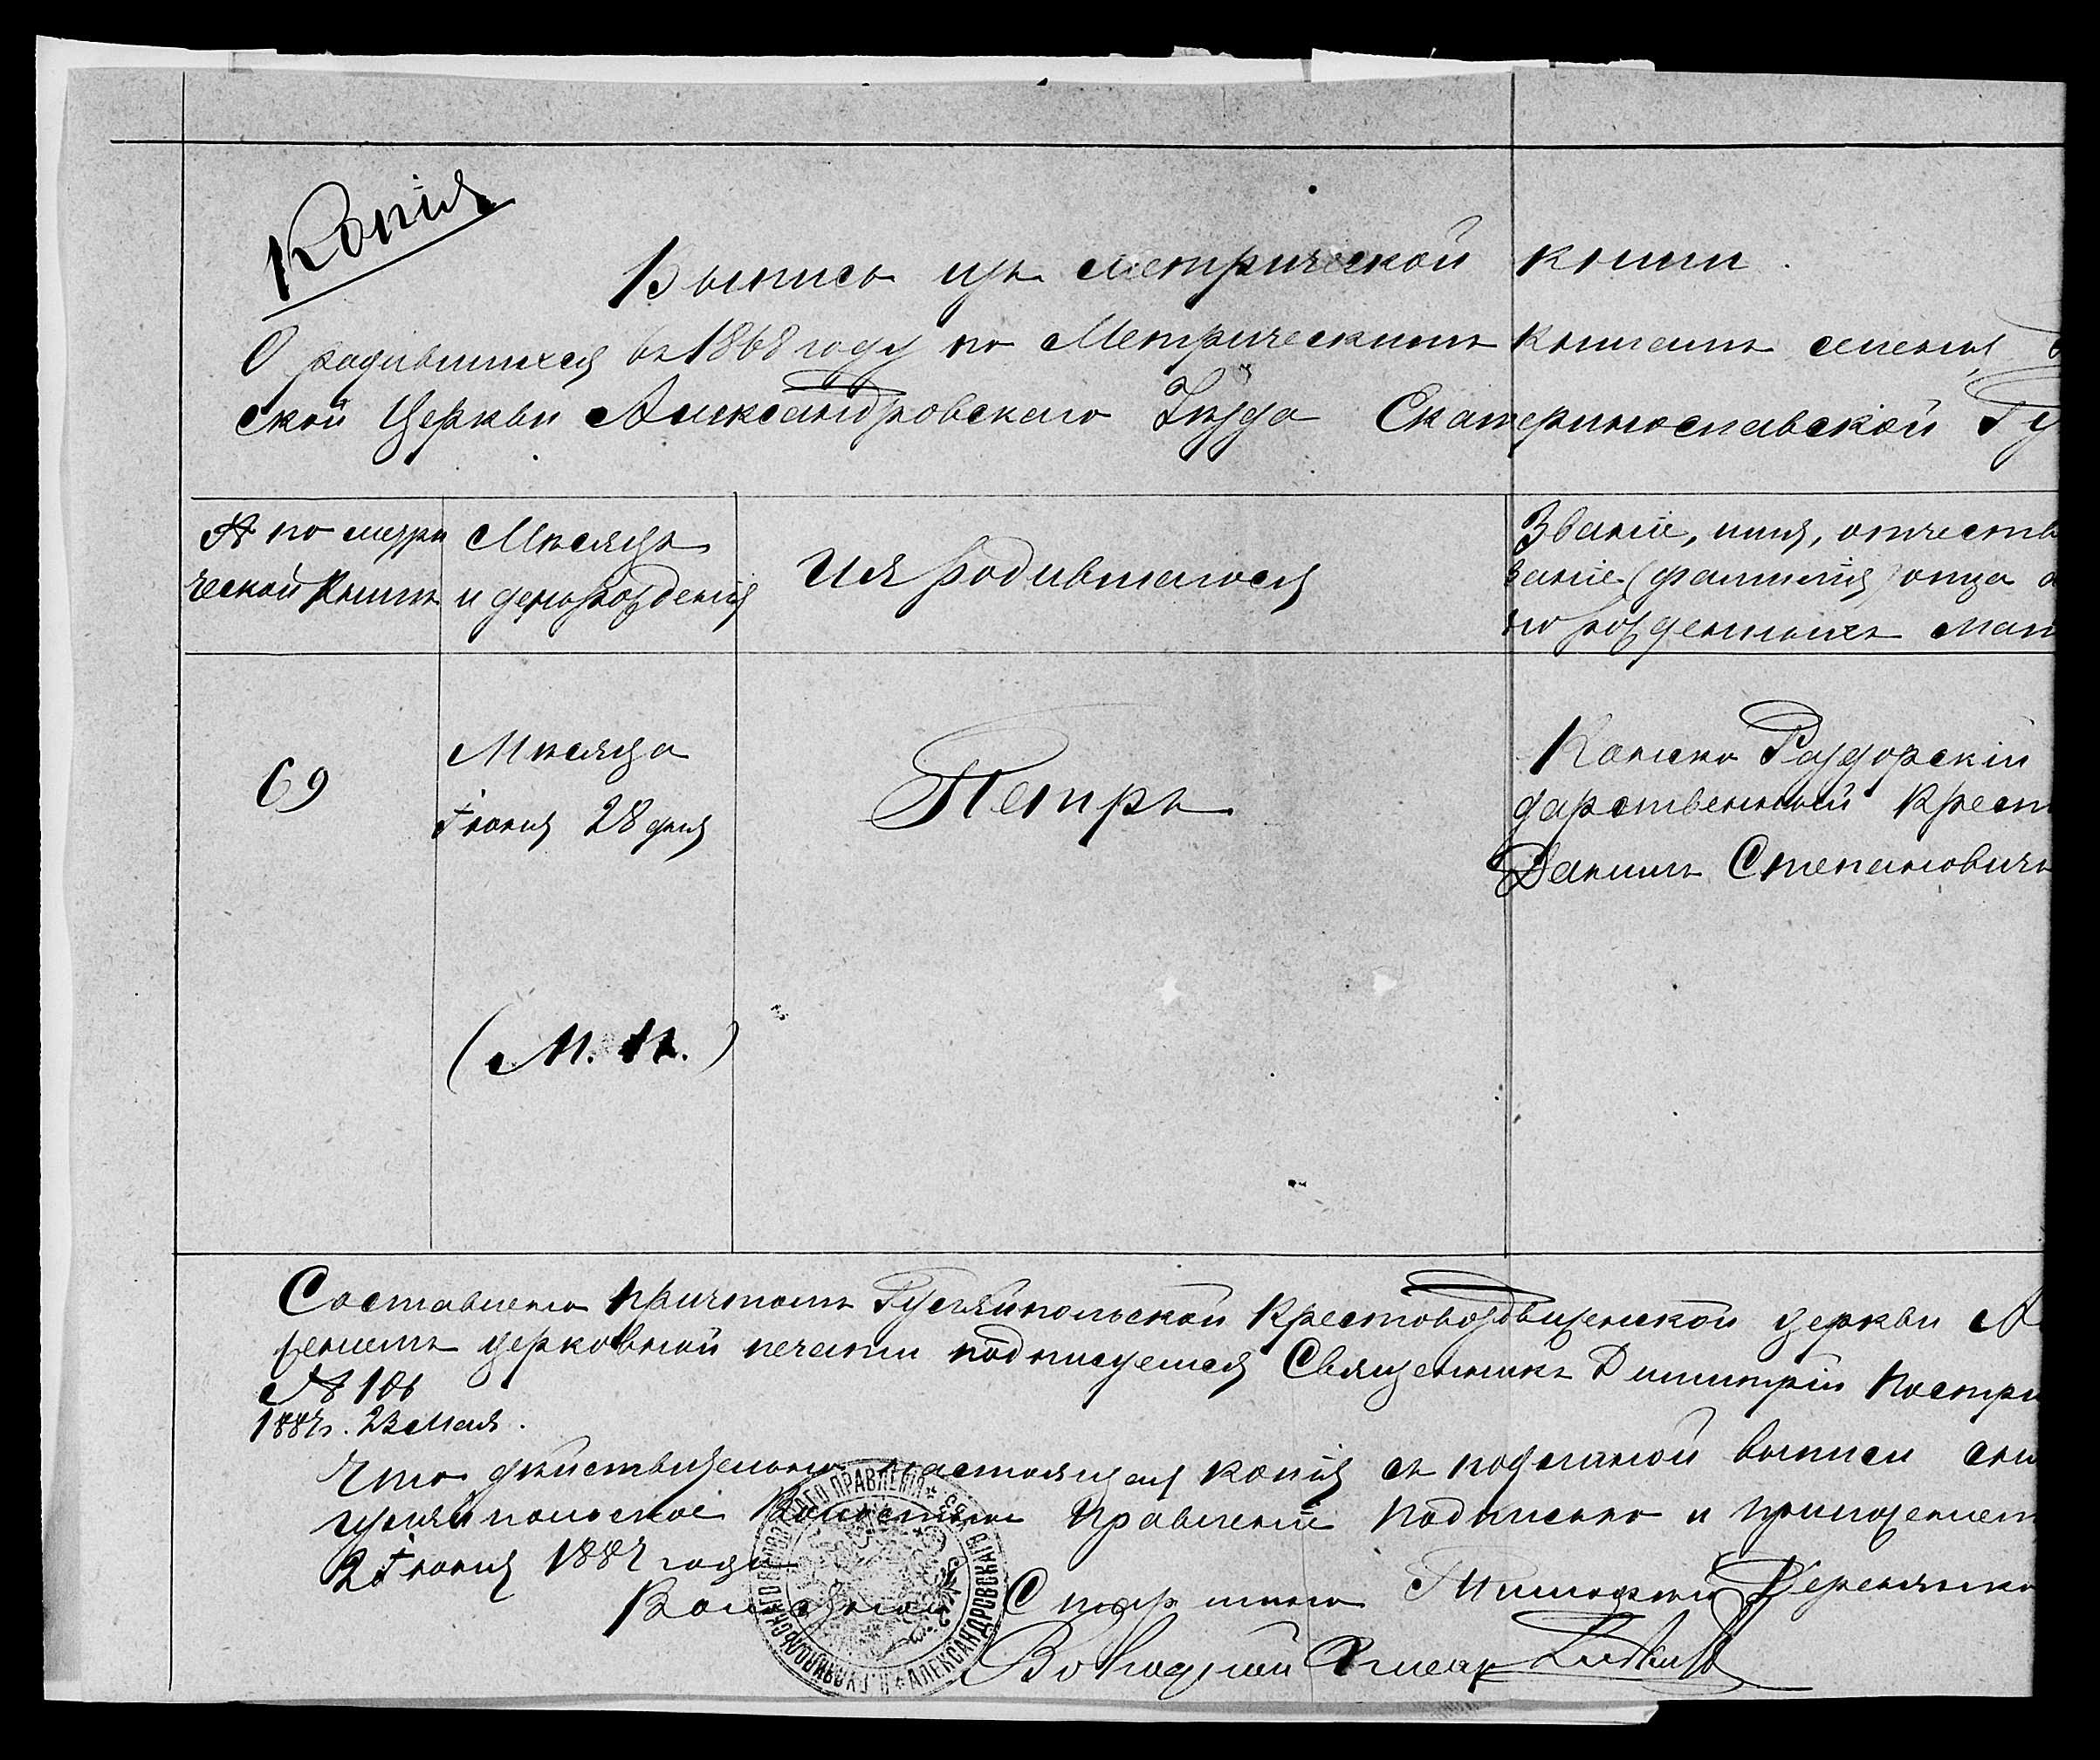 Копія
Выпись изъ метрической книги.
О родившихся въ 1868 году по Метрическимъ книгамъ селенія
ской Церкви Александровскаго Уѣзда Екатеринославской Гу
№ по метри
ческой Книги
Мѣсяцъ
и день рожденія
Имя родившагося
Званіе, имя, отчеств
ваніе (фамилія) отца
но рожденныхъ мат
69
Мѣсяца
Іюня 28 дня
Петръ
Конско Раздорскій
дарственный Крест
Даніилъ Степановичъ
(М. П.)
Составлена причтомъ Гуляйпольской Крестовоздвиженской церкви
женіемъ церковной печати подписуемся Священникъ Димитрій
№ 106
1887г. 23 Мая.
Что дѣйствительно настоящая копія съ подлиной выписи
гуляйпольское Волостное Правленіе подписью и приложеніем
2 Іюня 1887 года
Волостной Старшина Тимофей Веремѣенко
Волостной Писарь
ГУЛЯЙПОЛЬСКАГО ВОЛОСТНАГО ПРАВЛЕНІЯ * АЛЕКСАНДРОВСКАГО